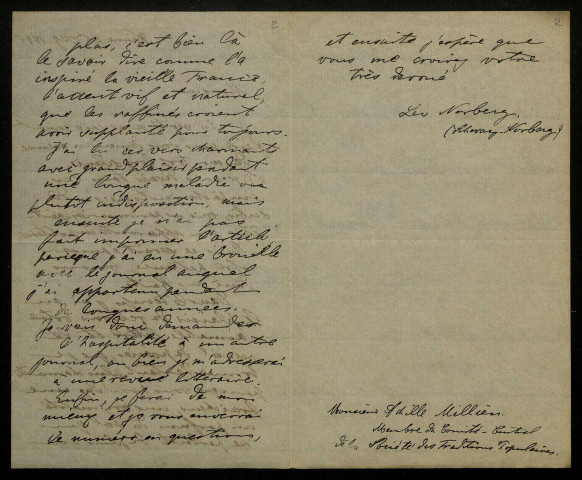 2
plus, c'est bien là
le savoir dire comme l'a
inspiré la vieille France,
l'accent vif et naturel,
que les raffinés croient
avoir supplanté pour toujours.
J'ai lu ces vers charmants
avec grand plaisir pendant
une longue maladie ou
plutôt indisposition, mais
ensuite je n'ai pas
fait imprimer l'article
parceque j'ai eu une brouille
avec le journal auquel
j'ai appartenu pendant
de longues années.
Je vais donc demander
l'hospitalité à un autre
journal, ou bien je m'adresserai
à une revue littéraire.
Enfin, je ferai de mon
mieux et je vous enverrai
le numéro en question,
2
et ensuite j'espère que
vous me croirez votre
très dévoué
Leo Norberg.
(Schwarz-Norberg)
Monsieur Achille Millien
Membre du Comité-Central
de la Société des Traditions Populaires.